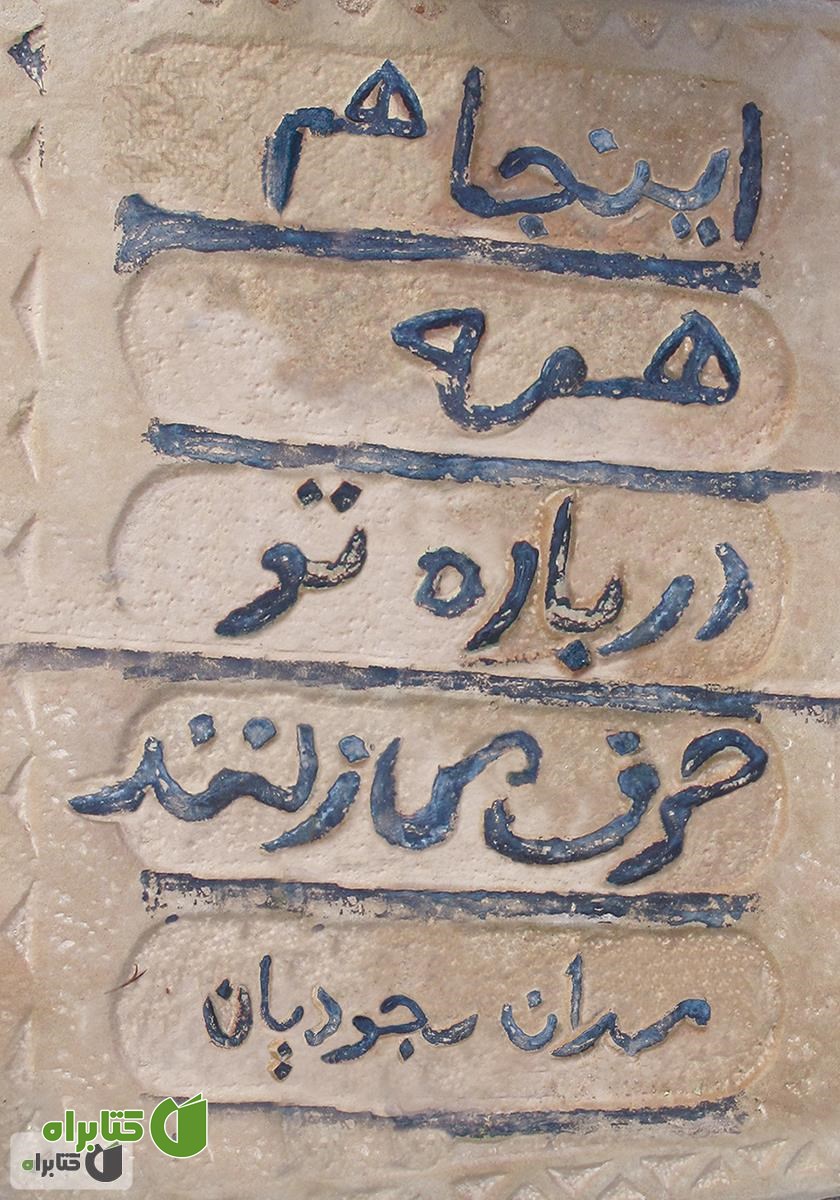 اینجا هم
همه
درباره تو
حرف می زنند
سجودیان
کتابراه
کتابراه